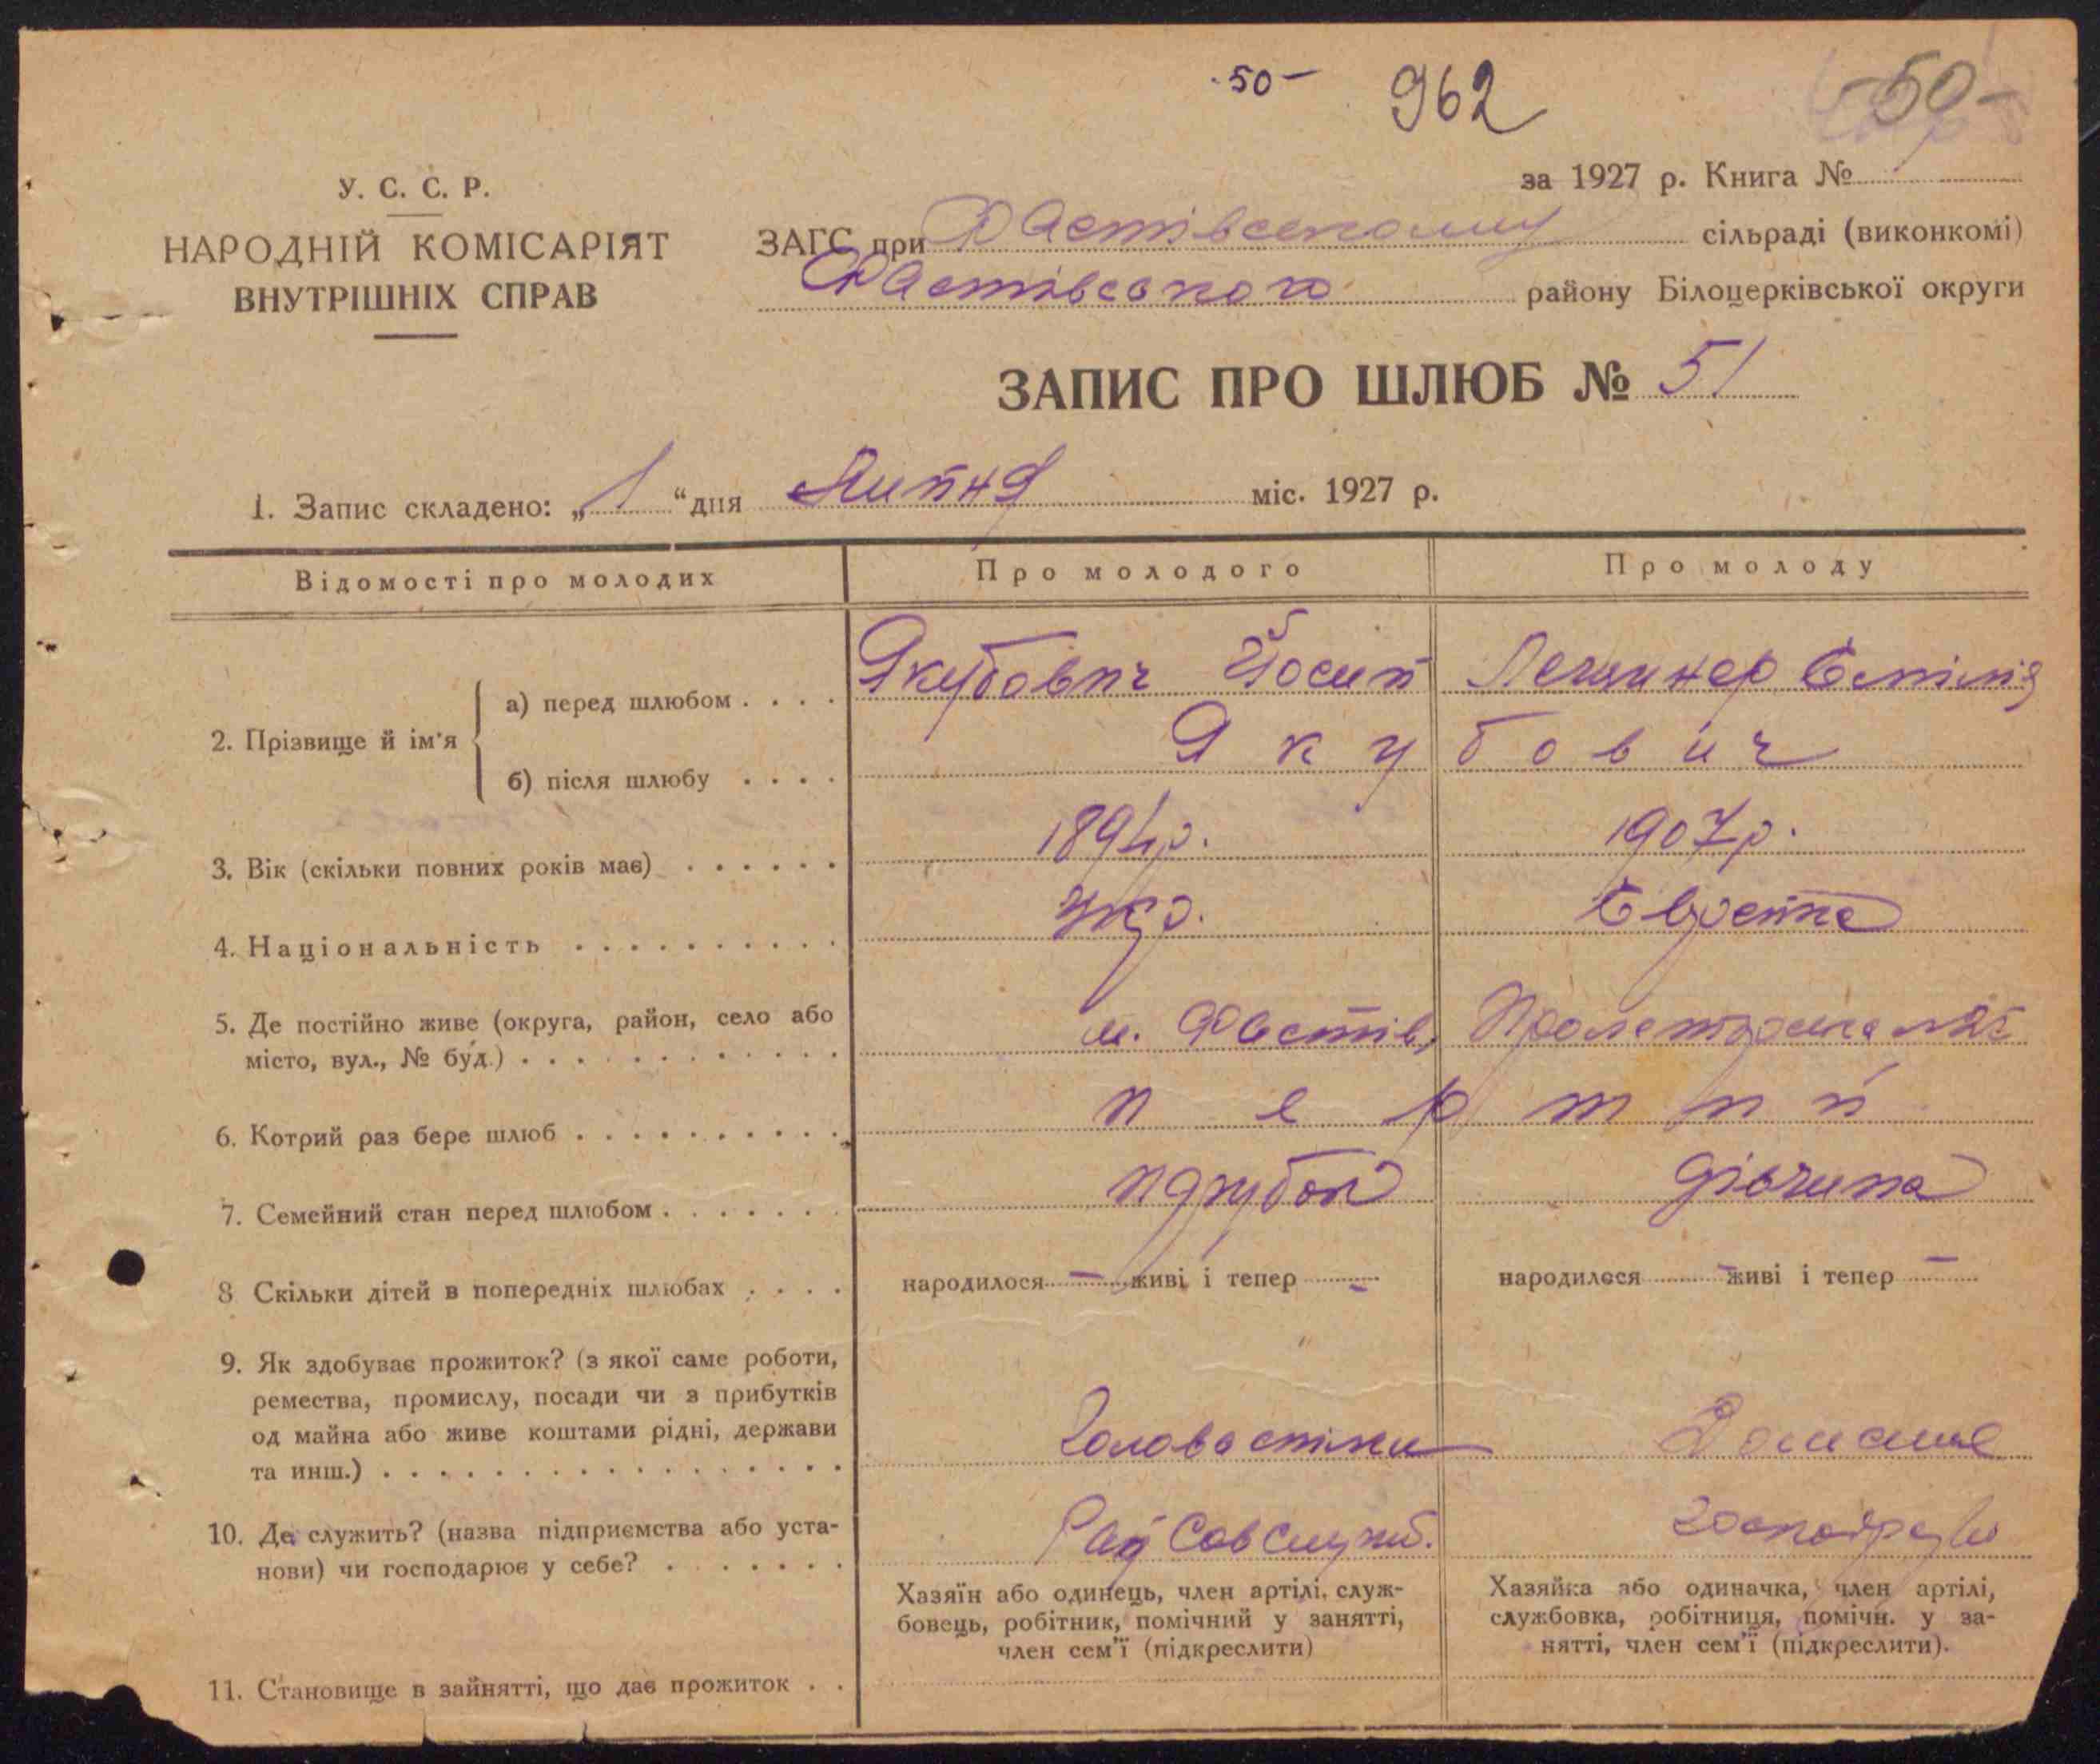 - 50 -
962
- 50 -
У. С. С. Р.
НАРОДНІЙ КОМІСАРІЯТ
ВНУТРІШНІХ СПРАВ
за 1927 р. Книга №
ЗАГС при Фастівському сільраді (виконкомі)
Фастівського району Білоцерківської округи
ЗАПИС ПРО ШЛЮБ № 51
1. Запис складено: „ 1 “ дня Липня міс. 1927 р.
Відомості про молодих
Про молодого
Про молоду
2. Прізвище й ім'я
а) перед шлюбом . . . .
Якубович Йосип
Емілія
б) після шлюбу . . . .
Якубович
3. Вік (скільки повних років має) . . . . . .
1894 р.
1907 р.
4. Національність . . . . . . . . . .
укр.
Єврейка
5. Де постійно живе (округа, район, село або
місто, вул., № буд.) . . . . . . . . . . . .
м. Фастів, Пролетарська
6. Котрий раз бере шлюб . . . . . . . . . .
перший
7. Семейний стан перед шлюбом . . . . . . .
парубок
дівчина
8 Скільки дітей в попередніх шлюбах . . . .
народилося — живі і тепер —
народилося — живі і тепер —
9. Як здобуває прожиток? (з якої саме роботи,
ремества, промислу, посади чи з прибутків
од майна або живе коштами рідні, держави
та инш.) . . . . . . . . . . . . . . . . .
Голова спілки
Домашнє
10. Де служить? (назва підприємства або уста-
нови) чи господарює у себе? . . . . . . .
Рад
Хазяїн або одинець, член артілі, служ-
бовець, робітник, помічний у занятті,
член сем'ї (підкреслити)
Хазяйка або одиначка, член артілі,
службовка, робітниця, помічн. у за-
нятті, член сем'ї (підкреслити).
11. Становище в зайнятті, що дає прожиток . .